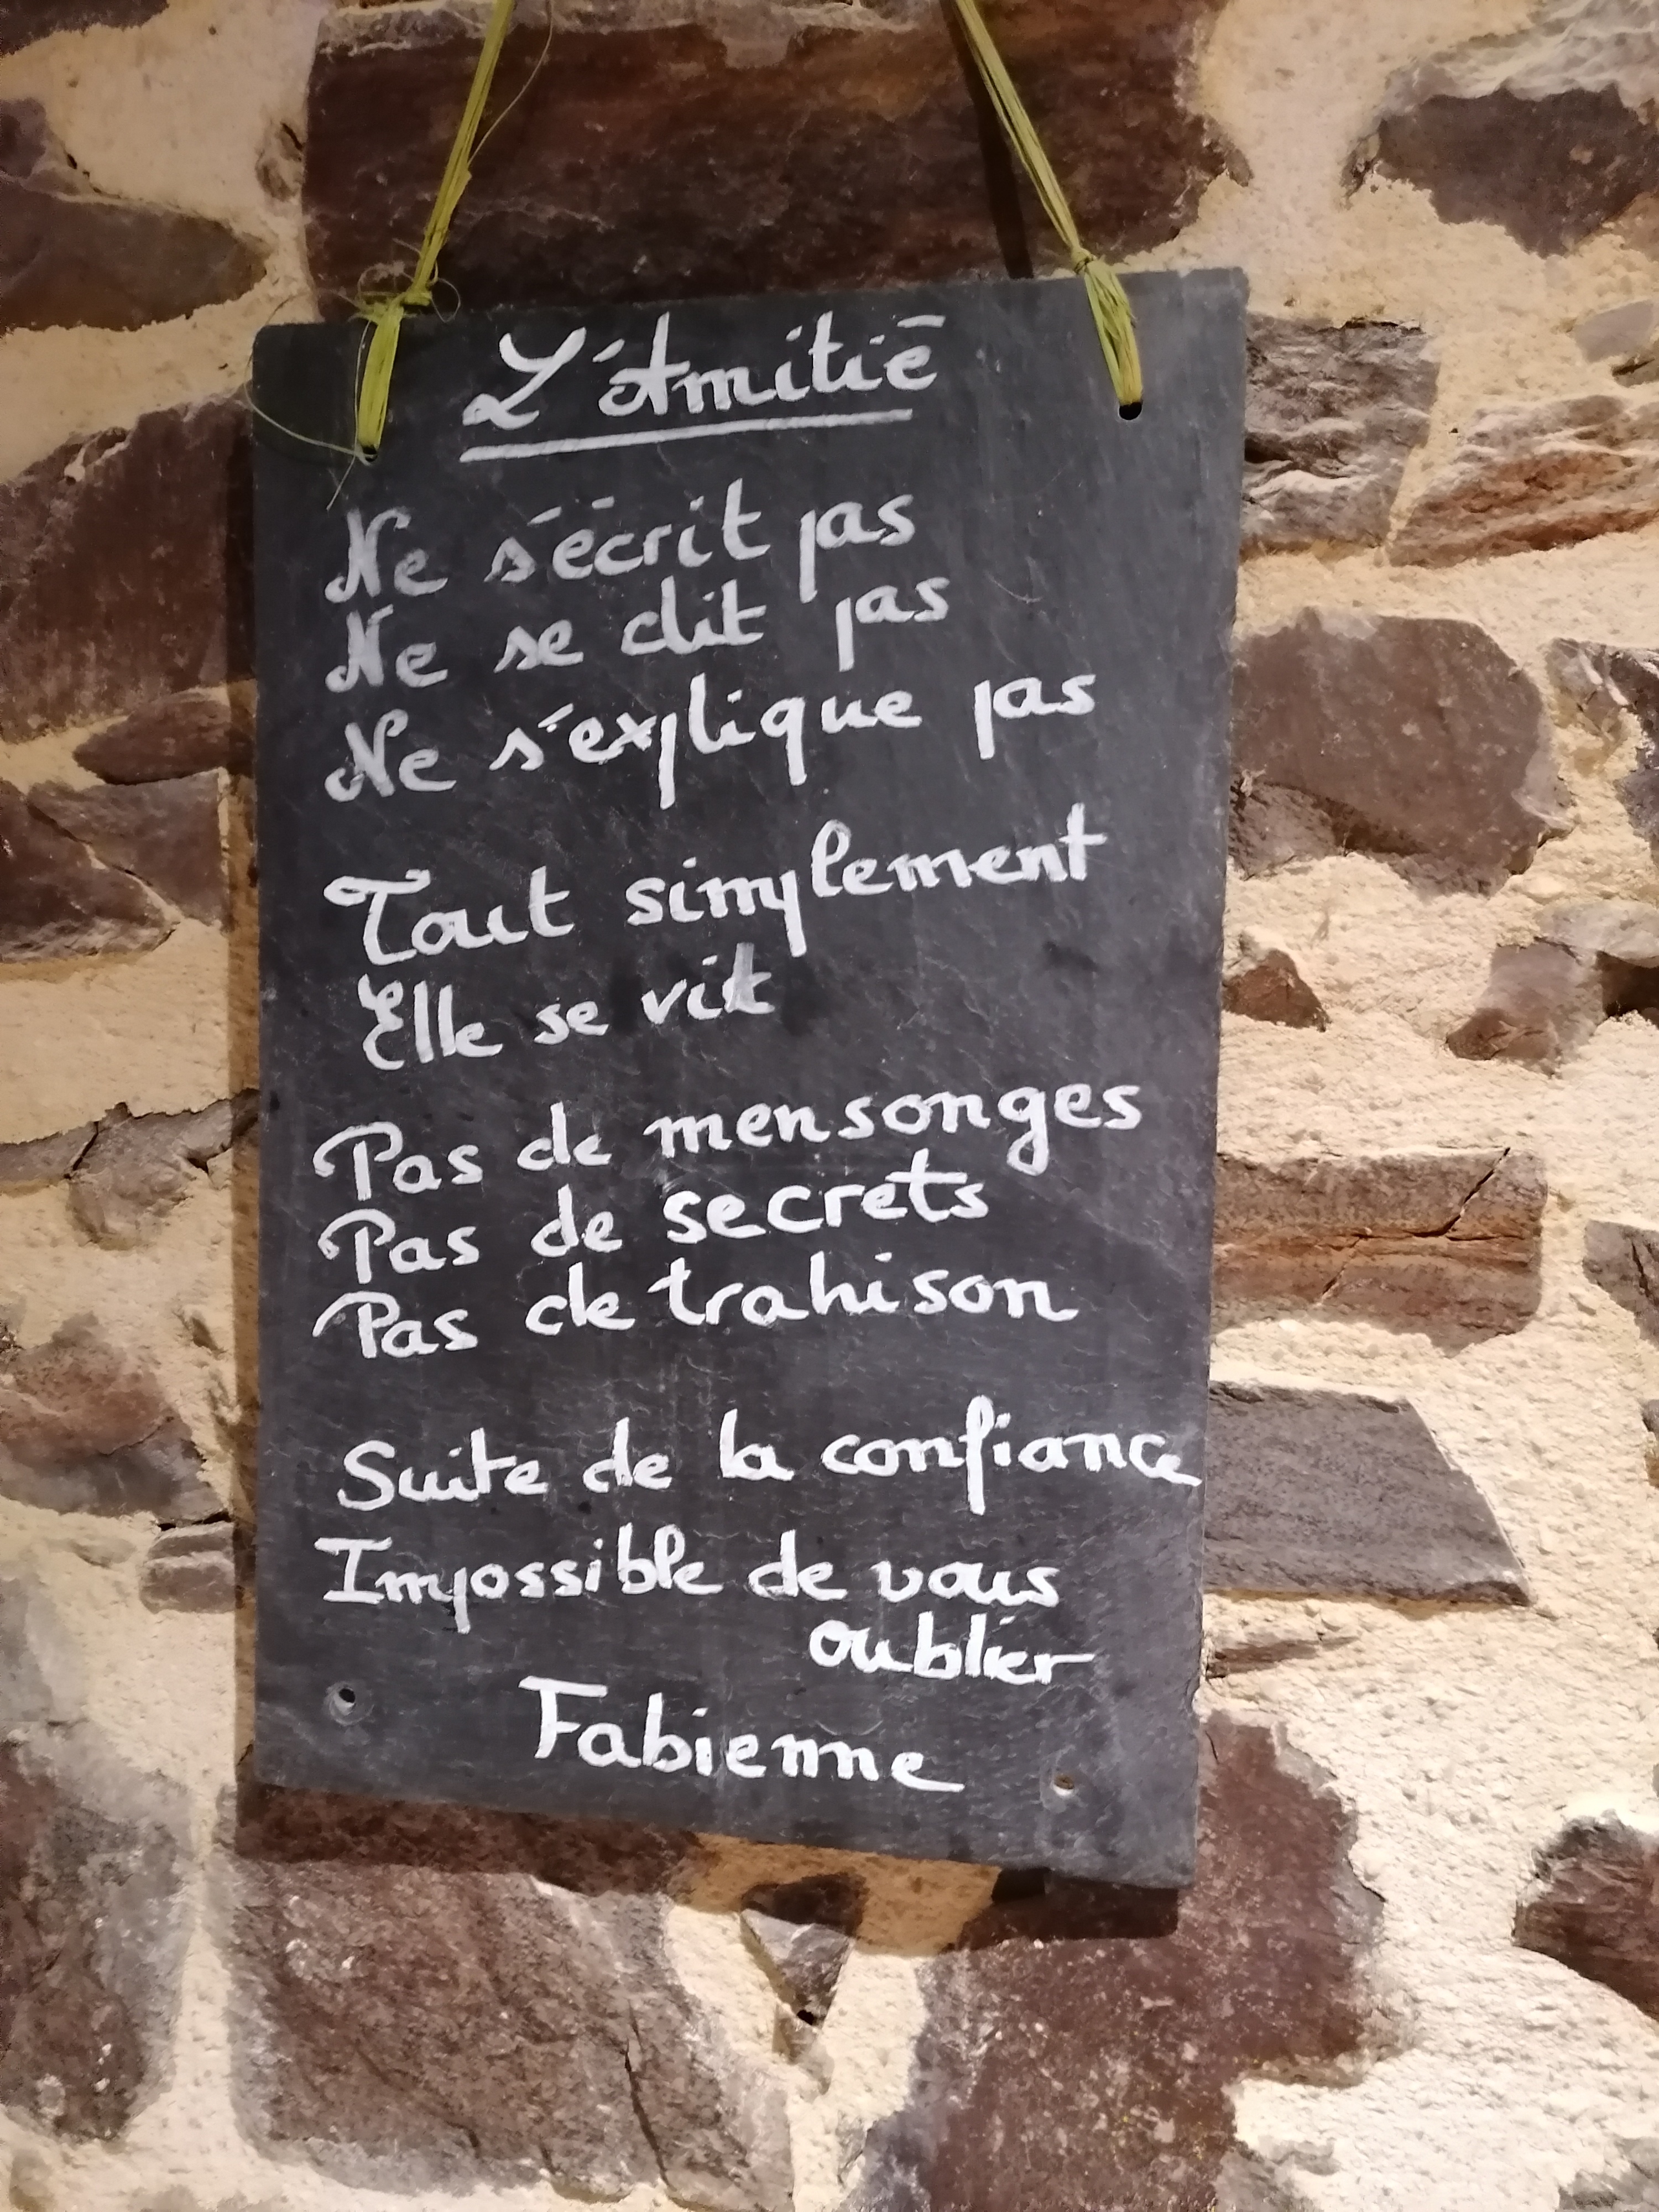 L'Amitié
Ne s'écrit pas
Ne se dit pas
Ne s'explique pas
Tout simplement
Elle se vit
Pas de mensonges
Pas de secrets
Pas de trahison
Suite de la confiance
Impossible de vous
oublier
Fabienne